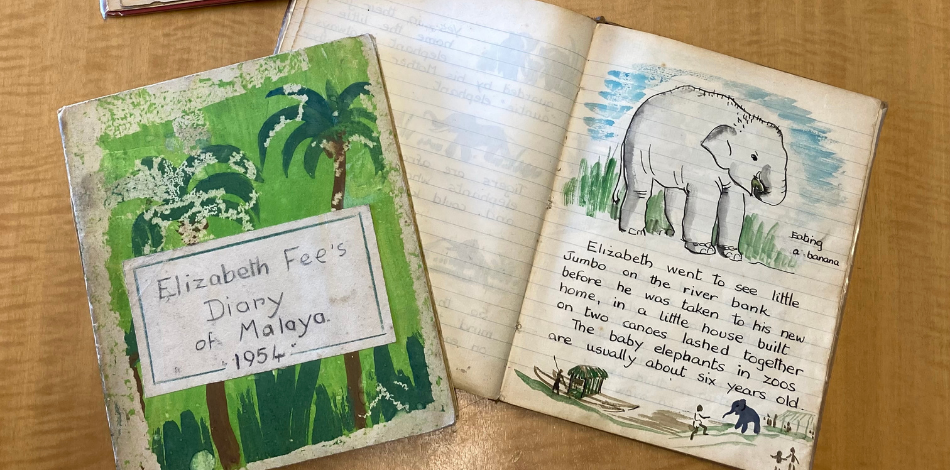 Elizabeth Fee's
Diary
of Malaya.
1954
Eating
a banana
Elizabeth went to see little
Jumbo on the river bank
before he was taken to his new
home, in a little house built
on two canoes lashed together
The baby elephants in zoos
are usually about six years old